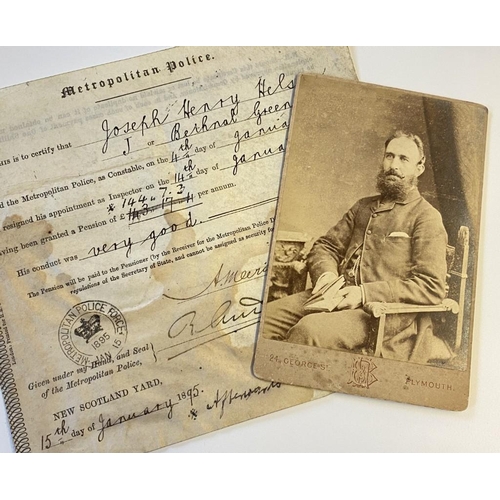 Metropolitan Police.
THIS is to certify that Joseph Henry Hels
J or Bethnal Green
the Metropolitan Police, as Constable, on the 4th day of Janua
resigned his appointment as Inspector on the 14th day of Janua
* 144. 7. 3
having been granted a Pension of £ per annum.
His conduct was very good.
The Pension will be paid to the Pensioner (by the Receiver for the Metropolitan Police D
regulations of the Secretary of State, and cannot be assigned as security for
METROPOLITAN POLICE FORCE
1895
JAN 15
Given under my Hand, and Seal
of the Metropolitan Police,
NEW SCOTLAND YARD,
15th day of January 1895.
* Afterwards
24, GEORGE ST
PLYMOUTH.